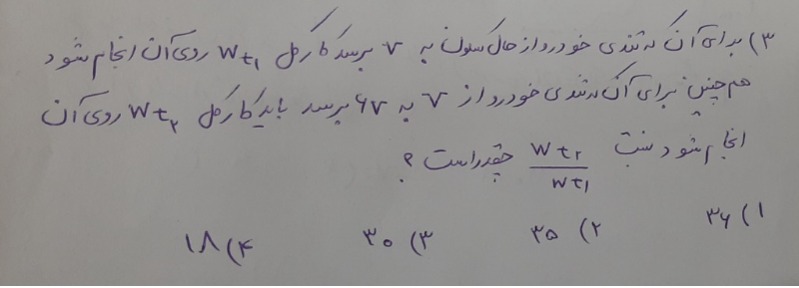 ۳) برای آن که تندی خودرو از حال سکون به v برسد کار کل Wt₁ روی آن انجام شود
هم چنین برای آن که تندی خودرو از v به 6v برسد باید کار کل Wt₂ روی آن
انجام شود نسبت Wt₂/Wt₁ چقدر است ؟
۱) ۳۶ ۲) ۳۵ ۳) ۳۰ ۴) ۱۸